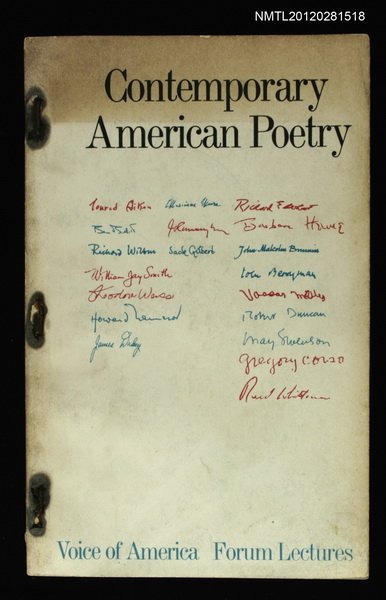 NMTL20120281518
Contemporary
American Poetry
Conrad Aiken Marianne Moore Richard Eberhart
Ben Belitt J.V. Cunningham Barbara Howes
Richard Wilbur Jack Gilbert John Malcolm Brinnin
William Jay Smith John Berryman
Theodore Weiss Vassar Miller
Howard Nemerov Robert Duncan
James Dickey May Swenson
Gregory Corso
Reed Whittemore
Voice of America Forum Lectures